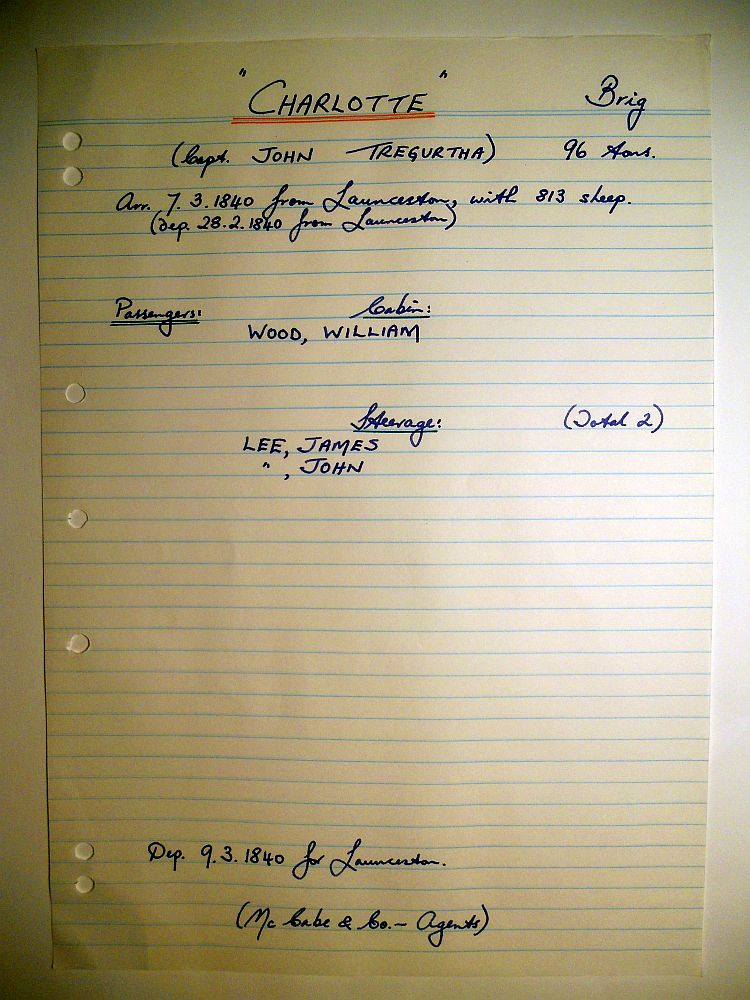 "CHARLOTTE" Brig
(Capt. JOHN TREGURTHA) 96 tons.
Arr. 7.3.1840 from Launceston, with 813 sheep.
(Dep. 28.2.1840 from Launceston)
Passengers: Cabin:
WOOD, WILLIAM
Steerage: (Total 2)
LEE, JAMES
" , JOHN
Dep. 9.3.1840 for Launceston.
(Mc Cabe & Co. – Agents)